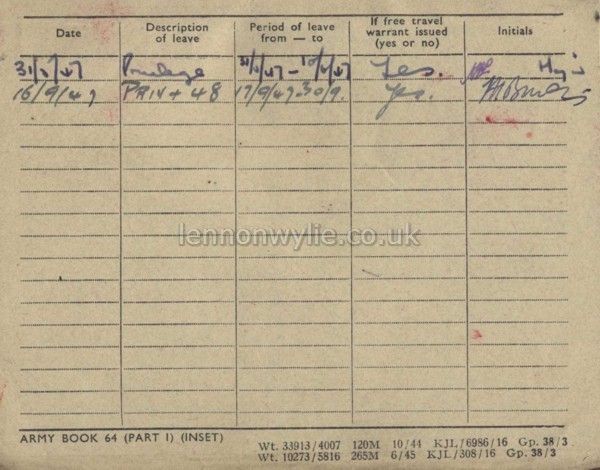 Date Description of leave Period of leave from — to If free travel warrant issued (yes or no) Initials
Privilege Yes.
16/9/47 PRIV + 48 17/9/47-30/9. Yes.
lennonwylie.co.uk
ARMY BOOK 64 (PART I) (INSET)
Wt. 33913/4007 120M 10/44 KJL/6986/16 Gp. 38/3
Wt. 10273/5816 265M 6/45 KJL/308/16 Gp. 38/3